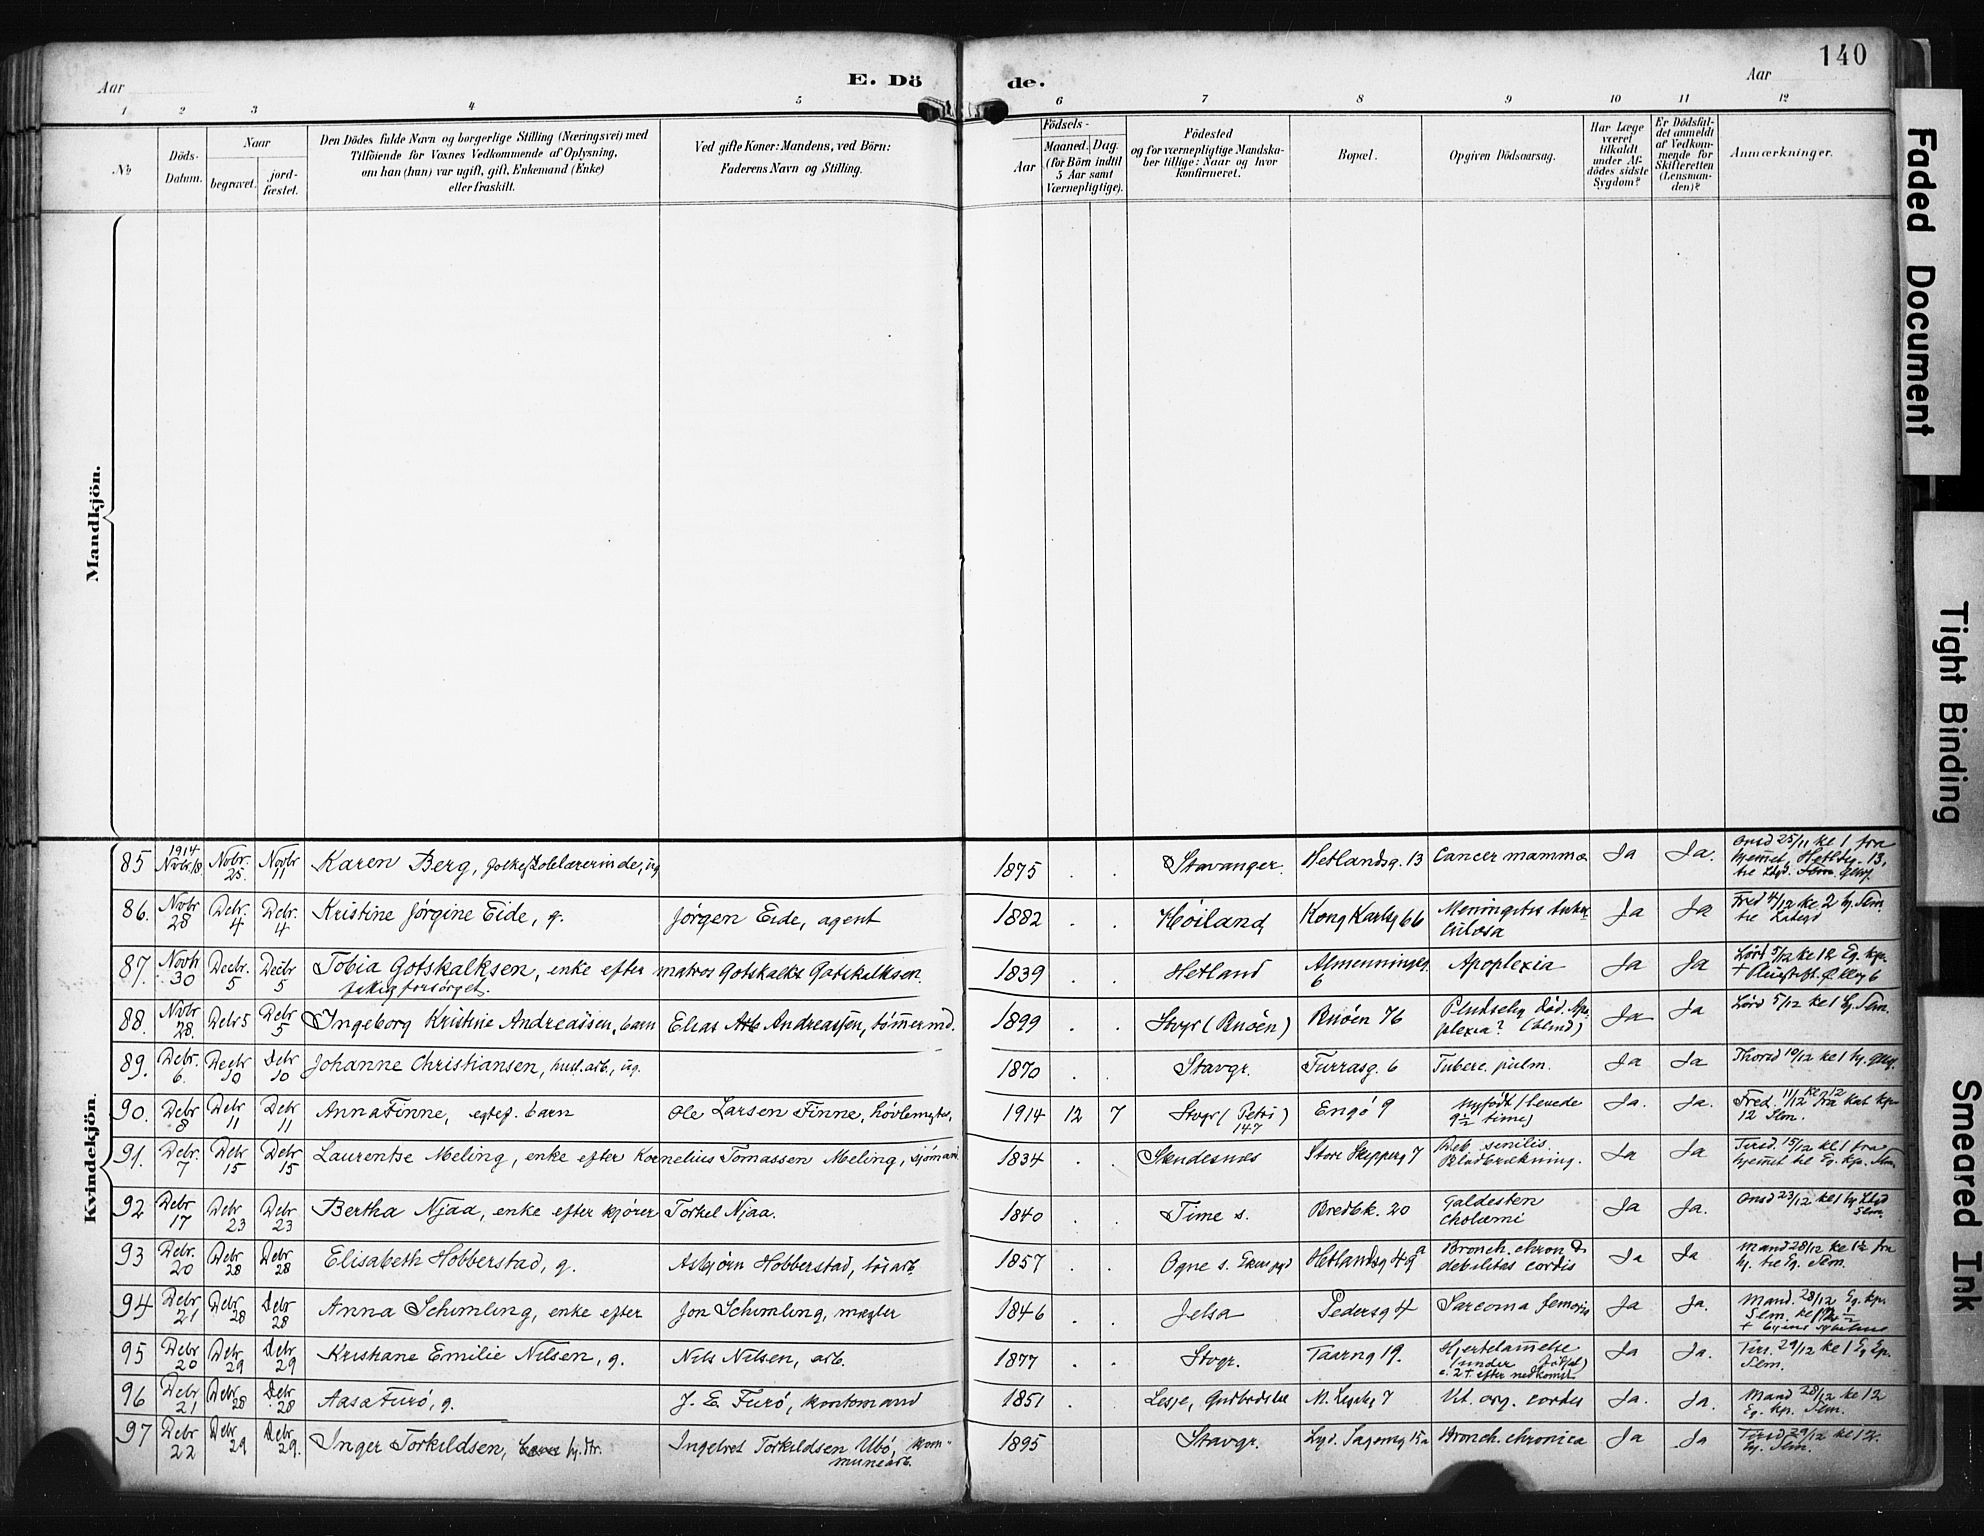 140
Aar
E. Dö
de.
Aar
1 2 3 4 5 6 7 8 9 10 11 12
No
Döds-
Datum.
Naar
begravet.
jord-
fæstet.
Den Dödes fulde Navn og borgerlige Stilling (Næringsvei) med
Tilföiende for Voxnes Vedkommende af Oplysning,
om han (hun) var ugift, gift, Enkemand (Enke)
eller fraskilt.
Ved gifte Koner: Mandens, ved Börn:
Faderens Navn og Stilling.
Födsels-
Aar
Maaned. Dag.
(for Börn indtil
5 Aar samt
Værnepligtige).
Födested
og for værnepligtige Mandska-
ber tillige: Naar og hvor
konfirmeret.
Bopæl.
Opgiven Dödsaarsag.
Har Læge
været
tilkaldt
under Af-
dödes sidste
Sygdom?
Er Dödsfal-
det anmeldt
af Vedkom-
mende for
Skifteretten
(Lensman-
den)?
Anmærkninger.
Mandkjön.
Kvindekjön.
85 1914 Novbr. 18 Novbr. 25. Novbr Karen Berg, folkeskolelærerinde, ug 1875 . . Stavanger. Hetlandsg. 13 Cancer mammæ Ja Ja. Onsd 25/11 kl 1 fra
hjemmet, Hetldg. 13,
86. Novbr 28 Debr. 4 Debr. 4 Kristine Jørgine Eide, g. Jörgen Eide, agent 1882 . . Høiland Kong Karlsg 66 Meningitis tuber
culosa Ja Ja Fred 4/12 kl. 2
87. Novb 30 Decbr. 5 Decbr 5 Tobia Gotskalksen, enke efter matros Gotskalk Gotskalksen
fattigforsörget. 1839 . . Hetland Almenningsg.
6 Apoplexia Ja Ja Lörd 5/12 kl 12 Eg. kp.
88. Novbr 28. Debr 5 Debr 5 Ingeborg Kristine Andreassen, barn Elias Andreassen, tömmermd. 1899 . . Stvgr (Buöen) Buöen 76 Pludselig död. Apo
plexia? (blind) Ja Ja Lörd 5/12 kl 1
89. Debr. 6. Decbr 10 Debr 10 Johanne Christiansen, husl. arb., ug. 1870 . . Stavgr. Turrasg. 6 Tuberc. pulm. Ja Ja Thorsd 10/12 kl 1
90. Debr 8 Debr 11 Debr 11 Anna Finne, egtef. barn Ole Larsen Finne, hövlemester. 1914 12 7 Stvgr (Petri)
147 Engö 9 nyfödt (levede
9 1/2 time) Ja. Ja. Fred. 11/12 kl 12 fra
91. Debr. 7 Debr 15 Debr 15 Laurentse Meling, enke efter Kornelius Tomassen Meling, sjömand 1834 . . Sandesnæs Store Skipperg 7 Deb. senilis.
Blodbrækning. Ja Ja Tirsd. 15/12 kl 1 fra
hjemmet til Eg. kp.
92 Debr 17 Debr 23 Debr 23 Bertha Njaa, enke efter kjörer Torkel Njaa. 1840 . . Time s. Bredbk. 20 Galdesten
cholæmi Ja Ja. Onsd 23/12 kl 1
93 Debr. 20 Debr 28 Debr 28 Elisabeth Hobberstad, g. Asbjörn Hobberstad, lösarb. 1857 . . Ogne s. Hetlandsg 49a Bronch. chron &
debilitas cordis Ja Ja Mand 28/12 fra
94 Debr 21 Debr. 28 Debr 28 Anna Schimling, enke efter Jon Schimling, mægler 1846 . . Jelsa Pedersg 4 Sarcoma femoris Ja Ja. Mand. 28/12 Eg. kp.
95 Debr 20 Debr 29 Debr 29 Kristiane Emilie Nilsen, g. Nils Nilsen, arb. 1877 . . Stvgr. Taarng 19. Hjertelammelse
(under födsel) Ja Ja. Tirs. 29/12 kl 1
96 Debr 21 Debr. 28 Debr. 28 Aasa Furö, g. J. E. Furö, kontomand 1851 . . Lesje, Gudbrdsdal 7 Vit. org. cordis Ja. Ja. Mand 28/12 kl 12
Eg. kp.
97 Debr 22 Debr 29 Debr. 29. Inger Torkildsen, Ingebret Torkildsen Ubö, kom-
munearb. 1895 Stavgr. 15a Bronch. chronica Ja Ja Tirsd 29/12 kl 12.
Faded Document
Tight Binding
Smeared Ink